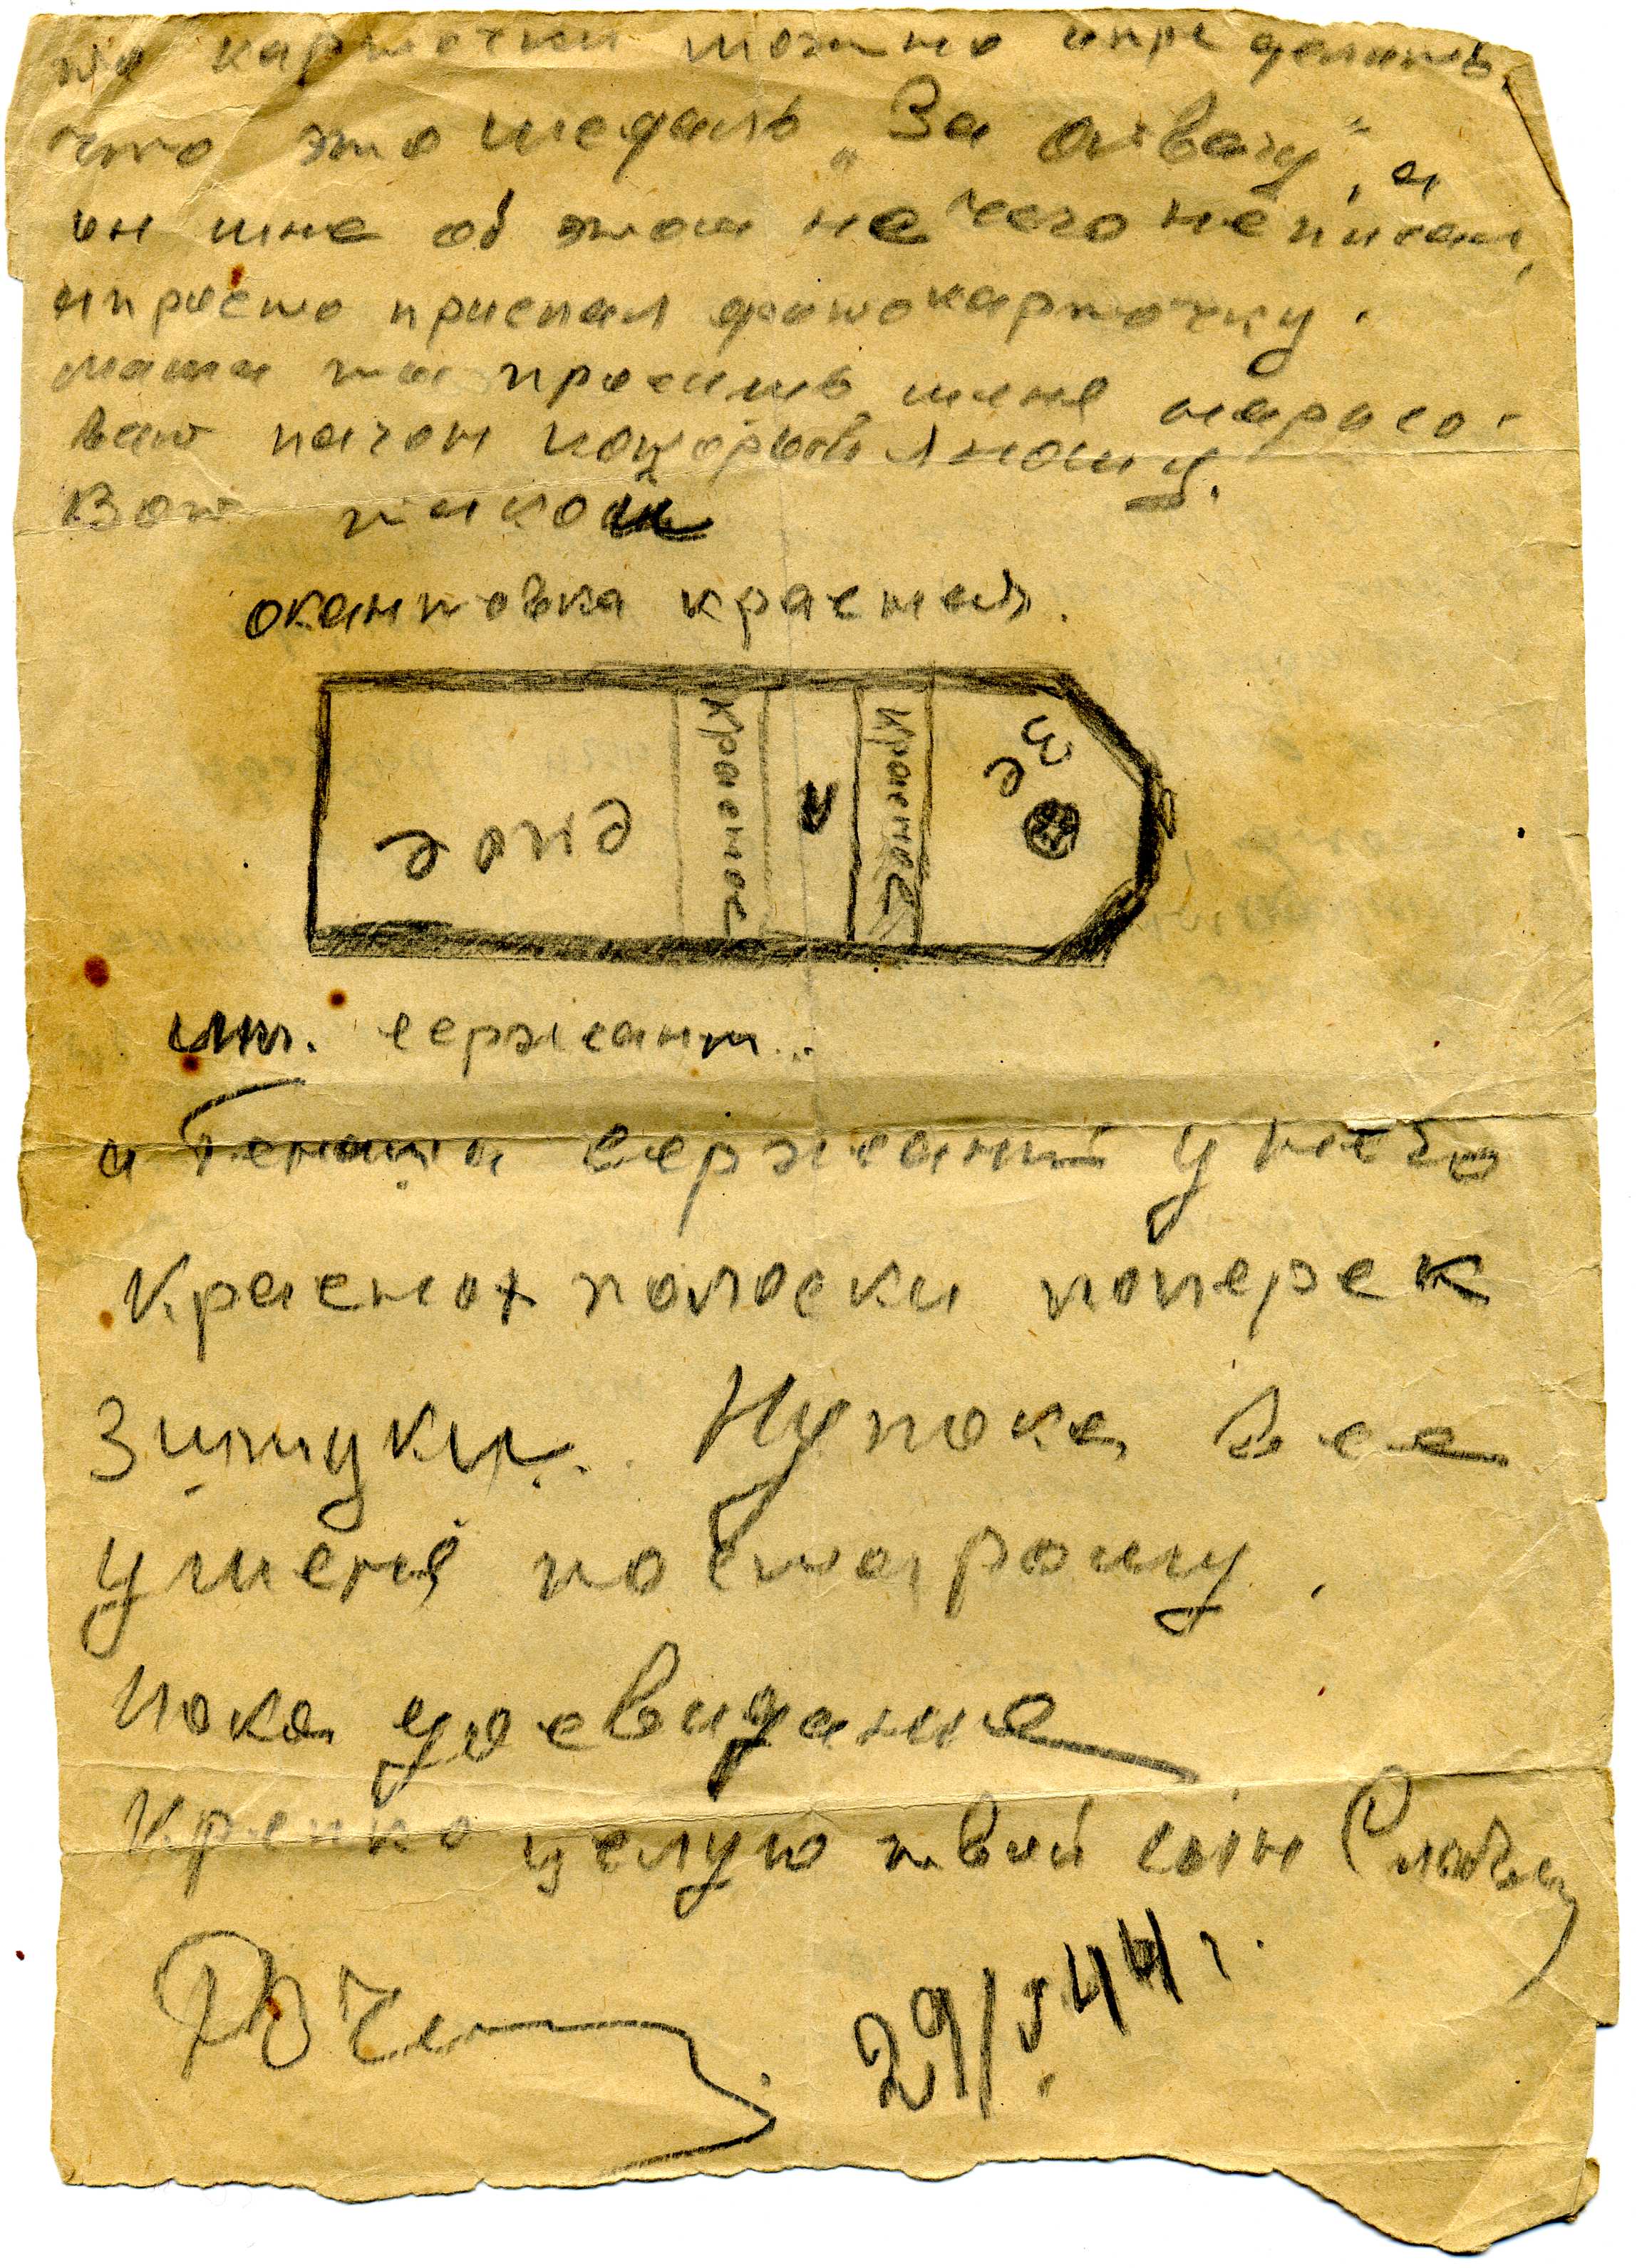 по карточки можно определить,
что это медаль „За отвагу“, а
он мне об этом не чего не писал,
а просто прислал фотокарточку.
мама ты просишь меня нарисо-
ват погон который я ношу.
Вот такой
окантовка красная.
Красное
Красное
зе
мл. сержант..
а Гена сержант у него
красных полоски поперек
3 штуки. Ну пока все
у меня по старому.
Пока досвидание
Крепко целую твой сын Славы
29/V 44 г.